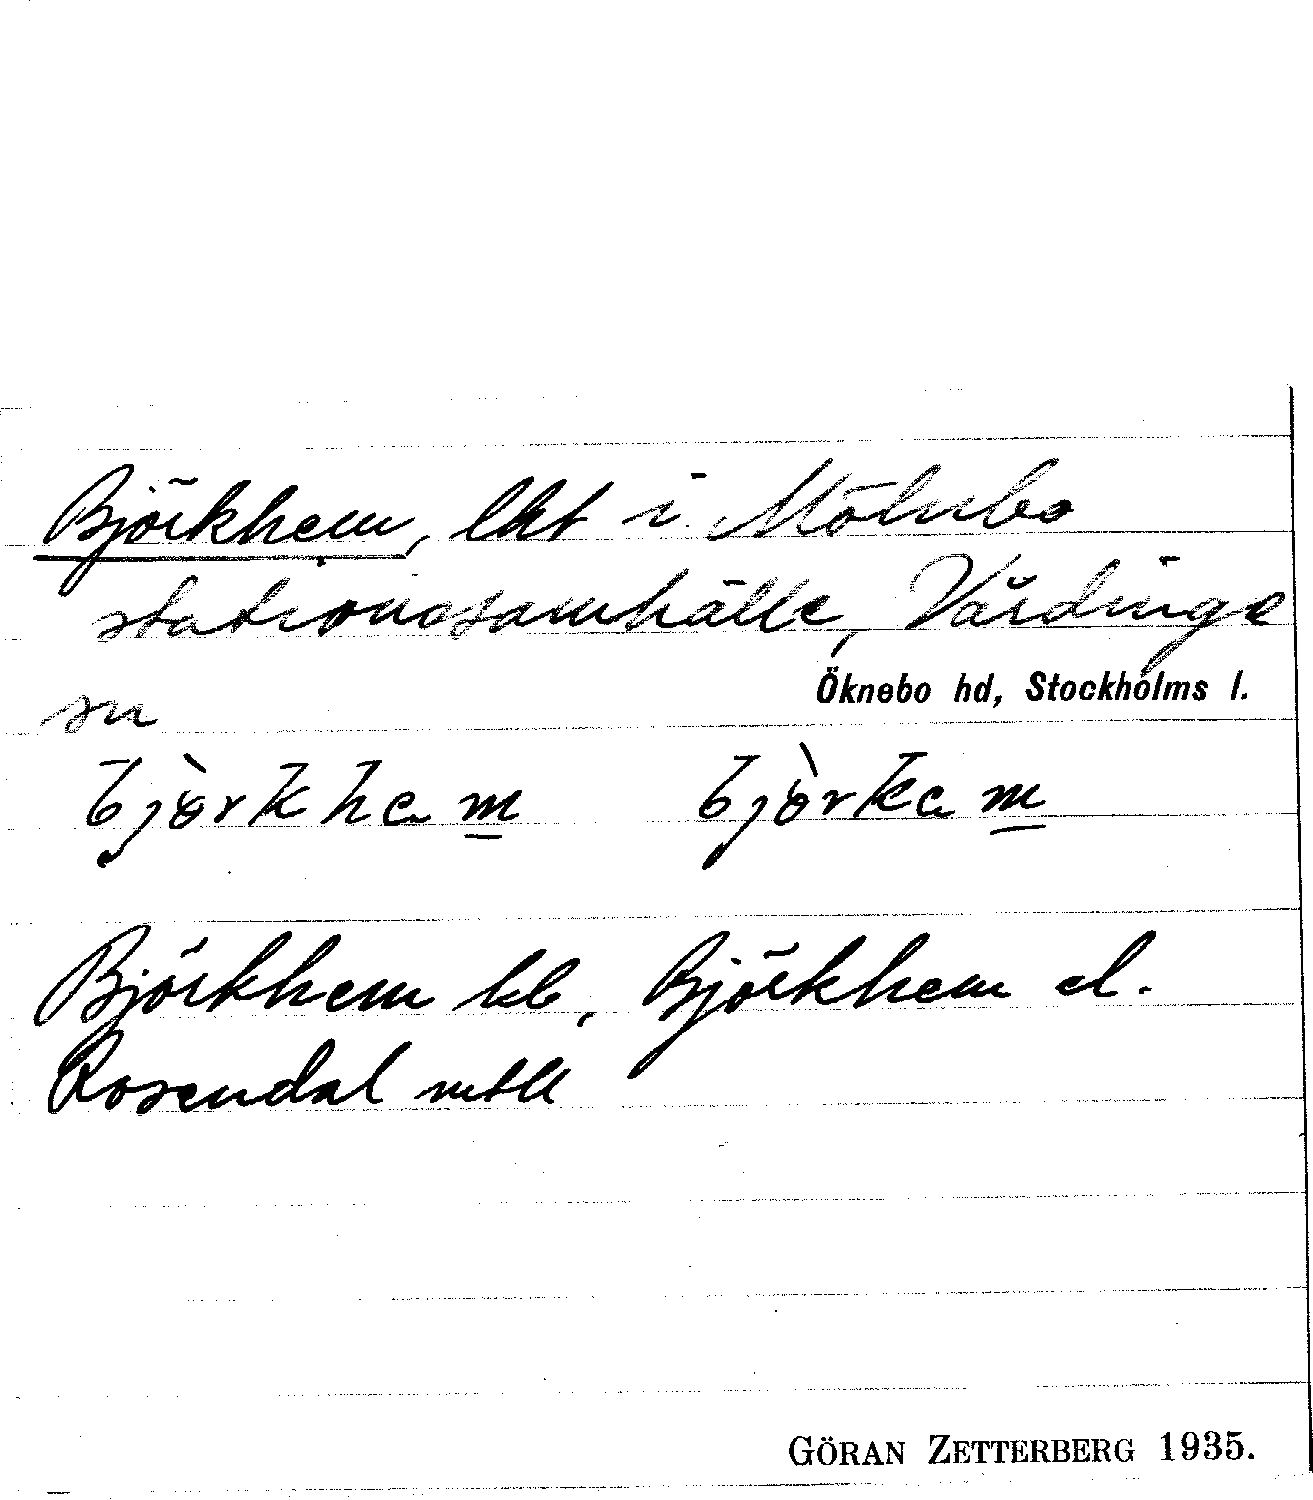 Björkhem, lht i Mölnbo
stationssamhälle, Vårdinge
Öknebo hd, Stockholms l.
sn
bjòrkhem bjòrkem
Björkhem hb, Björkhem el.
Rosendal mtll
GÖRAN ZETTERBERG 1935.